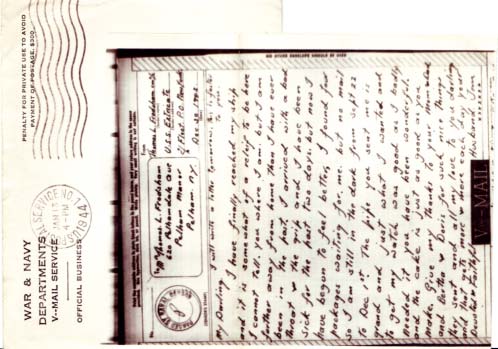 WAR & NAVY
DEPARTMENTS
V-MAIL SERVICE
OFFICIAL BUSINESS
PENALTY FOR PRIVATE USE TO AVOID
PAYMENT OF POSTAGE, $300
1944
No.
Mrs Thomas L. Frodsham
620 Pelhamdale Ave
Pelham Manor
Pelham N.Y.
From
Thomas L. Frodsham
U.S.S. Estimate
Fleet P.O.
Dec. 28, 1943
I will write a letter tomorrow,
My Darling,
I have finally reached my ship
and it is some what of a relief to be here
I cannot tell you where I am, but I am
farther away from home than I have ever
been in the past. I arrived with a bad
throat and I have been
sick for the past two days, but now I
have begun to feel better. I found four
packages waiting for me, but no mail
so I am still in the dark from Sept 22
to Dec 1st. The gift you sent me is
grand and just what I wanted and
to get my watch was good as I badly
needed it. You have been wonderful
and the cake is swell as soon as you
make. Give my thanks to your Mom & Dad
and Doris for such nice things
they sent and all my love to you, darling
Your
Devoted & Faithful Husband Tom
V···–MAIL